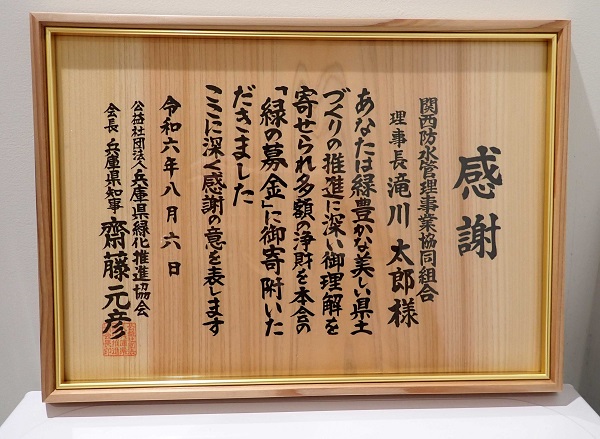 感謝
関西防水管理事業協同組合
理事長 滝川太郎様
あなたは緑豊かな美しい県土
づくりの推進に深い御理解を
寄せられ多額の浄財を本会の
「緑の募金」に御寄附いた
だきました
ここに深く感謝の意を表します
令和六年八月六日
公益社団法人兵庫県緑化推進協会
会長 兵庫県知事 齋藤元彦